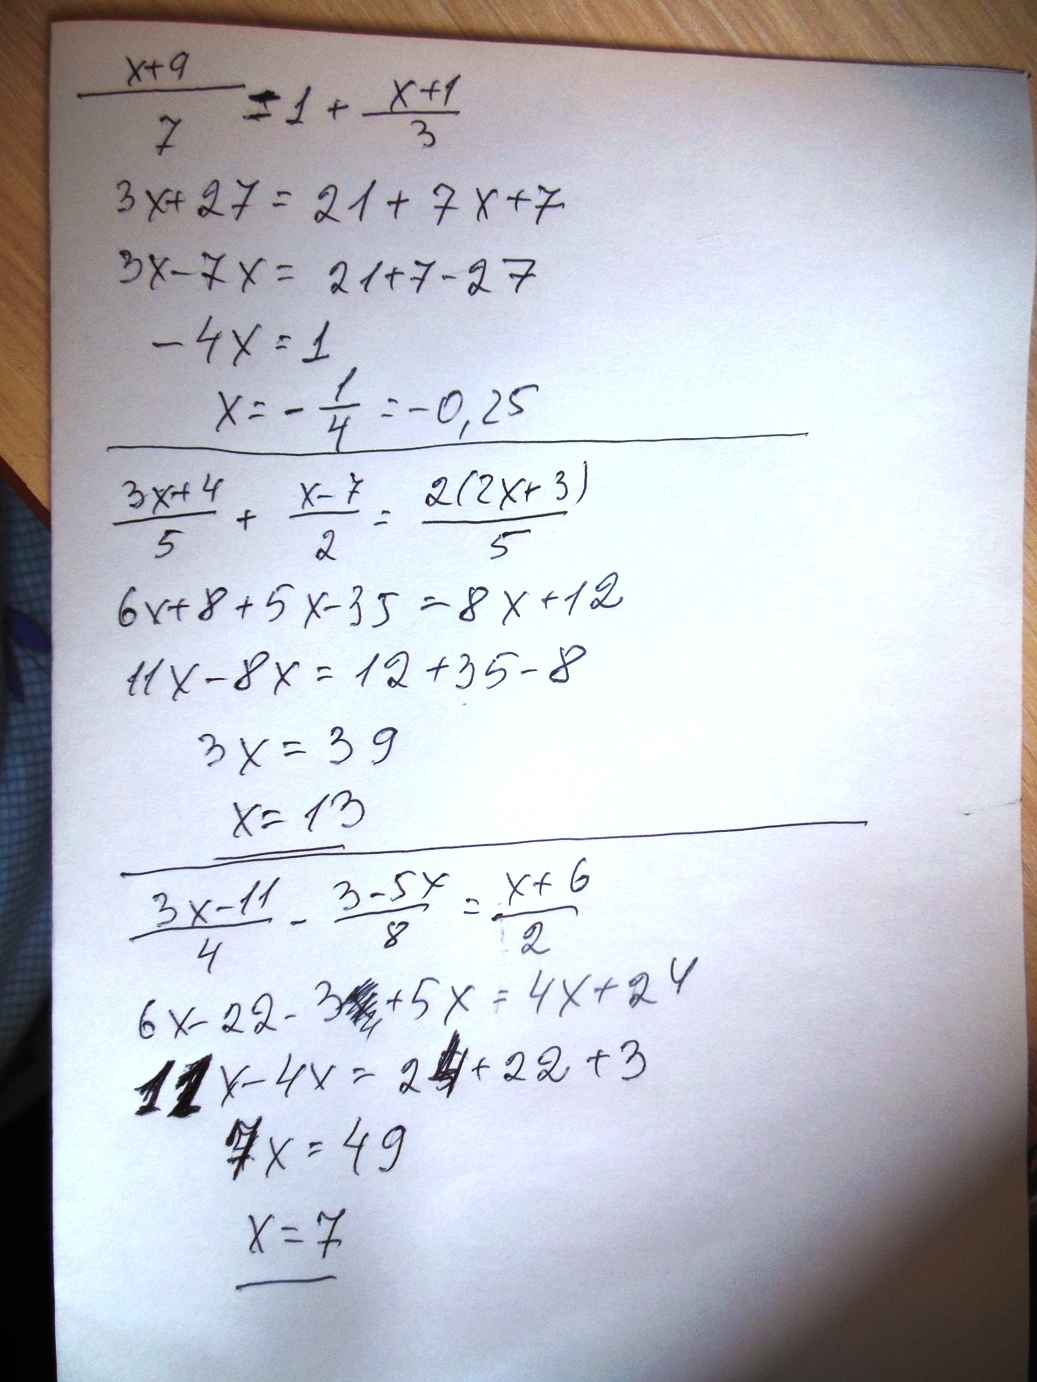 x+9/7 = 1 + x+1/3
3x+27 = 21 + 7x+7
3x-7x = 21+7-27
-4x = 1
x = -1/4 = -0,25
3x+4/5 + x-7/2 = 2(2x+3)/5
6x+8+5x-35 = 8x+12
11x-8x = 12+35-8
3x = 39
x = 13
3x-11/4 - 3-5x/8 = x+6/2
6x-22-3+5x = 4x+24
11x-4x = 24+22+3
7x = 49
x = 7